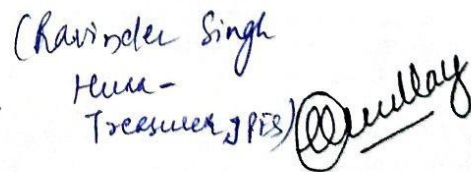 (Ravinder Singh
Hura-
Treasurer JPIS)